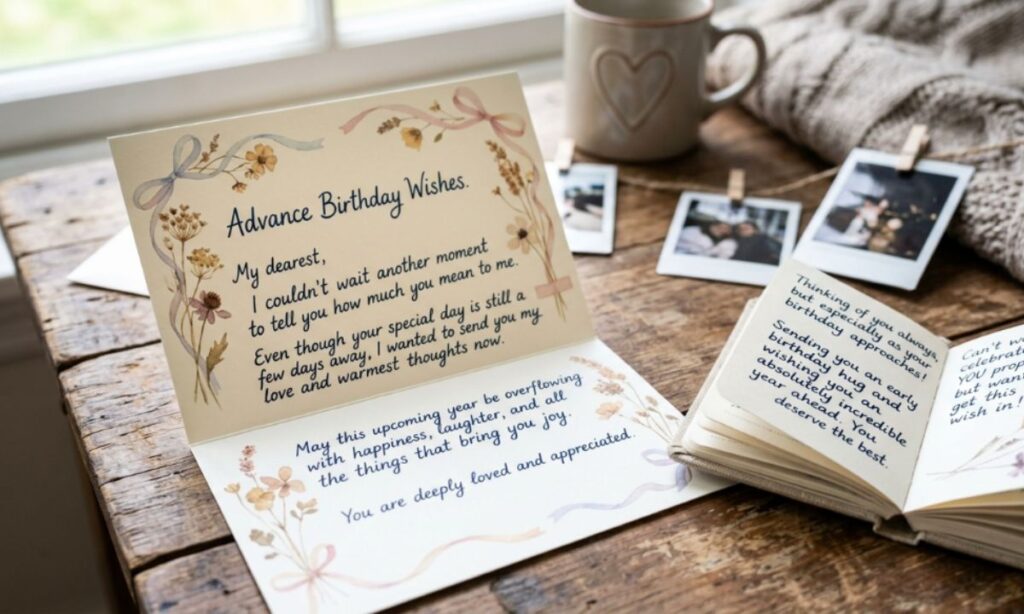 Advance Birthday Wishes.
My dearest,
I couldn't wait another moment
to tell you how much you mean to me.
Even though your special day is still a
few days away, I wanted to send you my
love and warmest thoughts now.
May this upcoming year be overflowing
with happiness, laughter, and all
the things that bring you joy.
You are deeply loved and appreciated.
Thinking of you always,
but especially as your
birthday approaches!
Sending you an early
birthday hug and
wishing you an
absolutely incredible
year ahead. You
deserve the best.
Can't
celebrat
YOU prop
but want
get this
wish in!